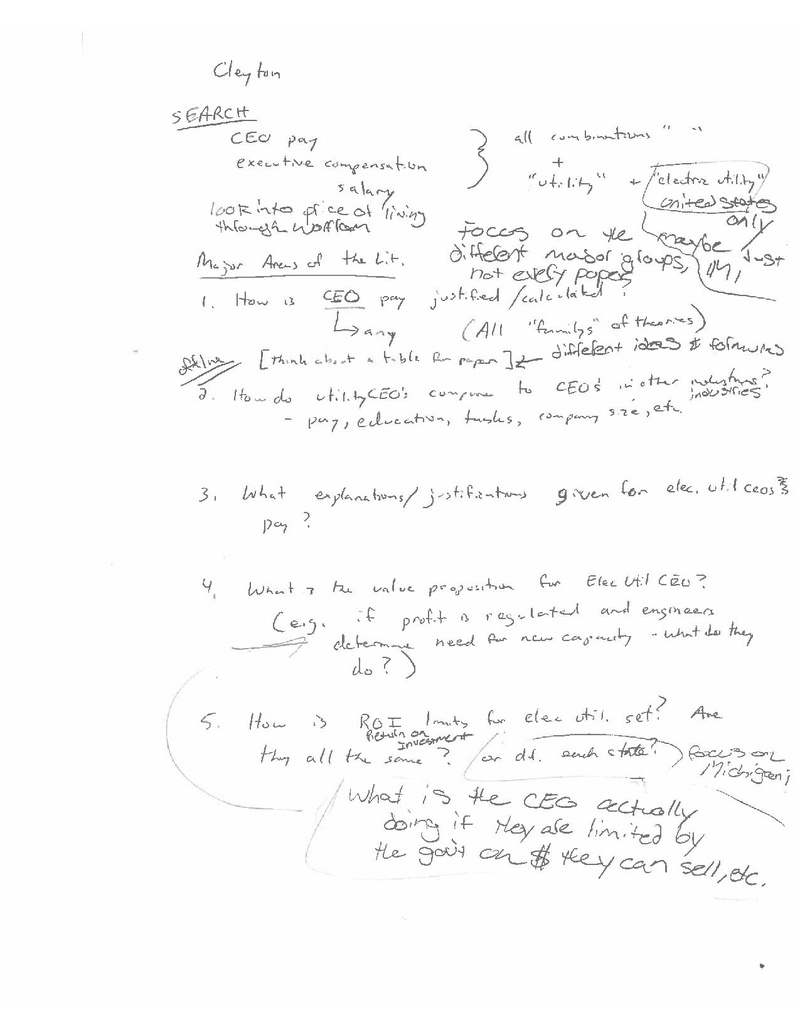 Cleyton
SEARCH
CEO pay
executive compensation
salary
all combinations " "
+
"utility" + "electric utility"
united states
only
maybe just
MI,
look into price of living
through Wolfram
Focus on the
different major groups,
not every paper
Major Areas of the Lit.
1. How is CEO pay justified/calculated?
any
(All "familys" of theories)
offline [think about a table for paper] different ideas & formulas
2. How do utility CEO's compare to CEO's in other industries?
industries
- pay, education, tasks, company size, etc.
3. What explanations/justifications given for elec. util ceos
pay?
4. What is the value proposition for Elec Util CEO?
(e.g. if profit is regulated and engineers
determine need for new capacity - what do they
do?)
5. How is ROI limits for elec util. set? Are
Return on
Investment
they all the same? or dif. each state? focus on
Michigan;
What is the CEO actually
doing if they are limited by
the gov't on $ they can sell, etc.